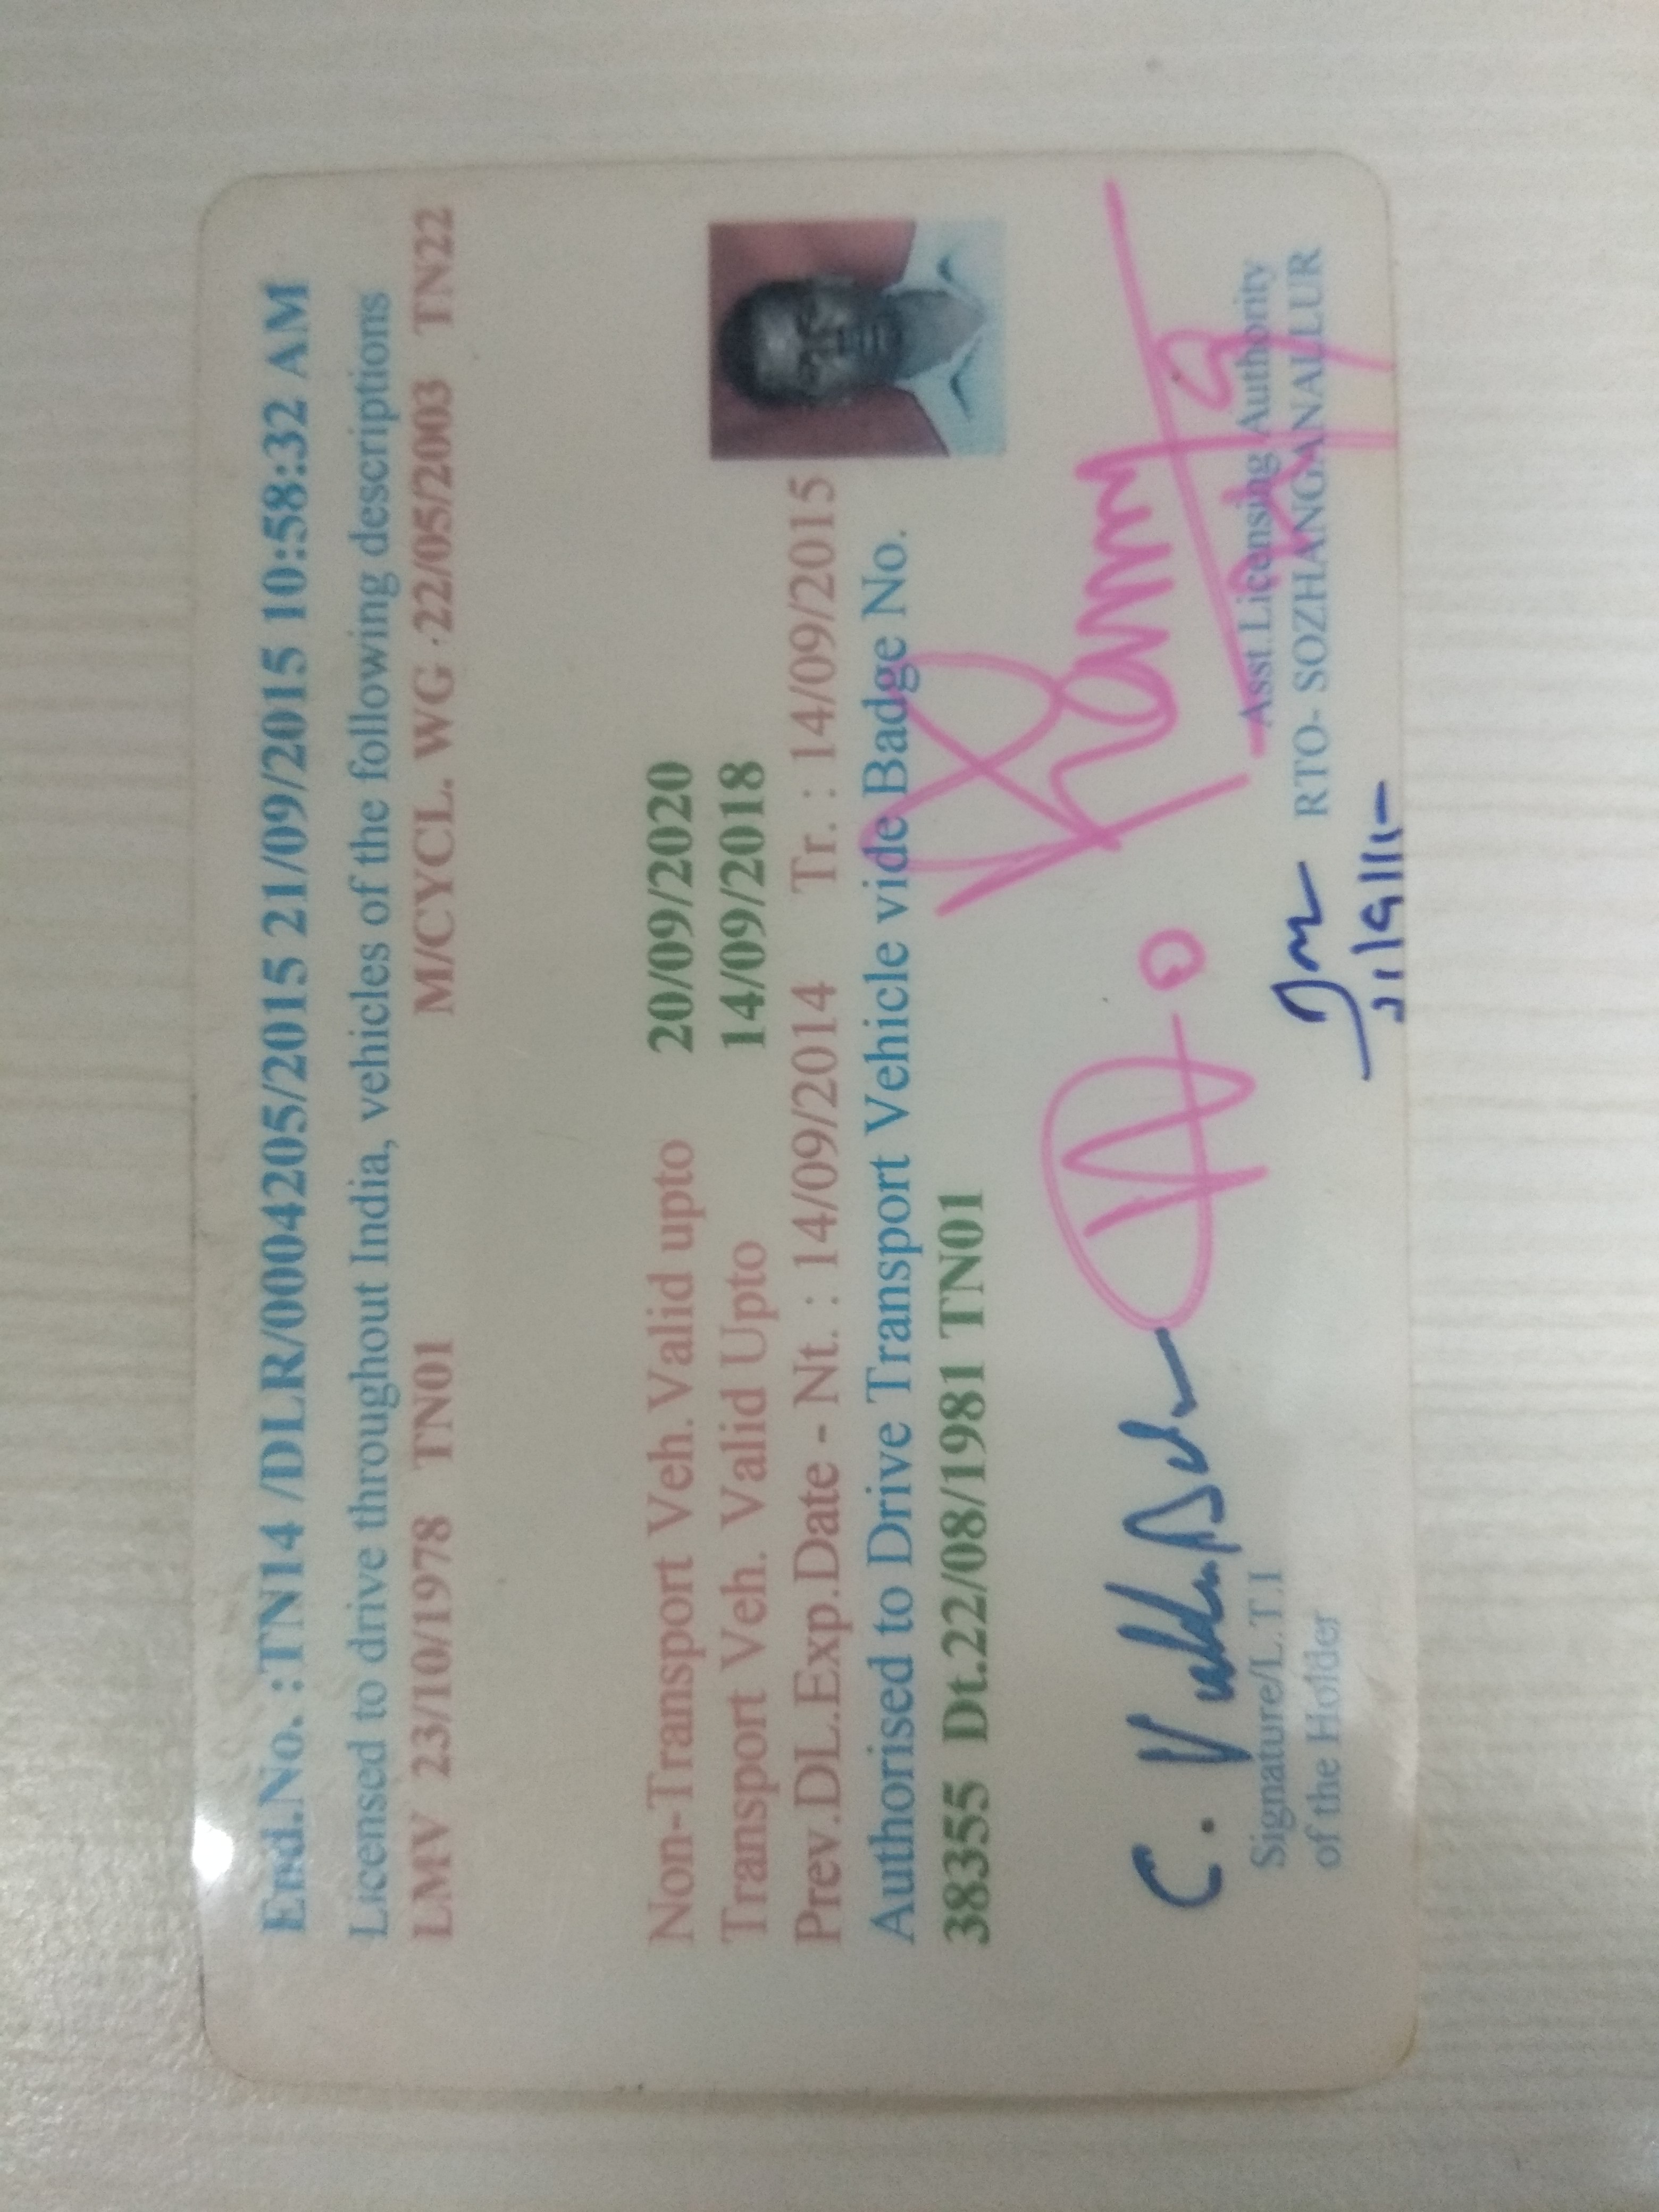 End.No. :TN14 /DLR/0004205/2015 21/09/2015 10:58:32 AM
Licensed to drive throughout India, vehicles of the following descriptions
LMV 23/10/1978 TN01 M/CYCL. WG 22/05/2003 TN22
Non-Transport Veh. Valid upto 20/09/2020
Transport Veh. Valid Upto 14/09/2018
Prev.DL.Exp.Date - Nt. : 14/09/2014 Tr. : 14/09/2015
Authorised to Drive Transport Vehicle vide Badge No.
38355 Dt.22/08/1981 TN01
C.
Signature/L.T.I
of the Holder
Asst.Licensing Authority
RTO- SOZHANGANALLUR